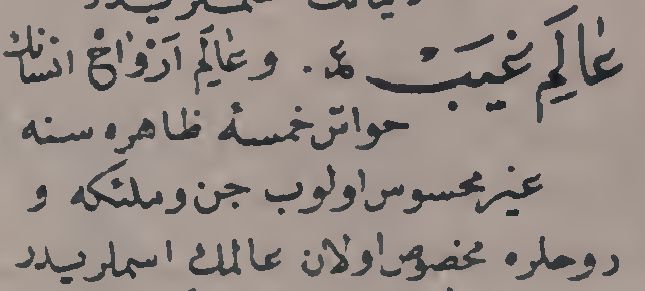 عَالَمِ غَيبْ عـ. و عَالَمِ اَرْوَاحْ انسانك
حواسّ خمسهٔ ظاهره سنه
غير محسوس اولوب جن وملئكه و
روحلره مخصوص اولان عالمك اسملريدر